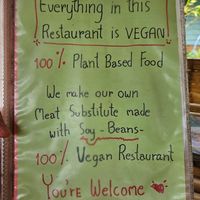 Everything in this
Restaurant is VEGAN!
100% Plant Based Food
We make our own
Meat Substitute made
with Soy-Beans-
100% Vegan Restaurant
You're Welcome